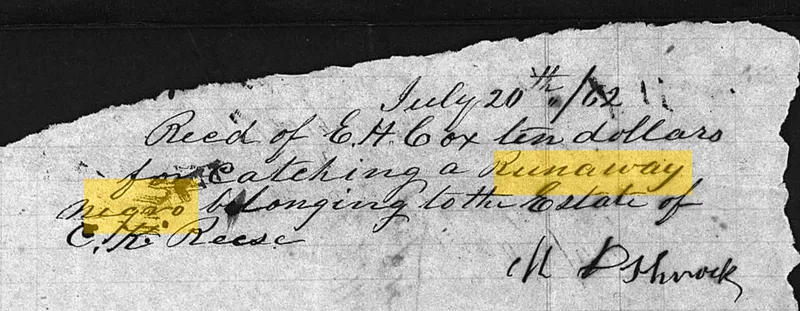 July 20th/62
Recd of E. H. Cox ten dollars
for Catching a Runaway
negro belonging to the Estate of
C. R. Reese
M